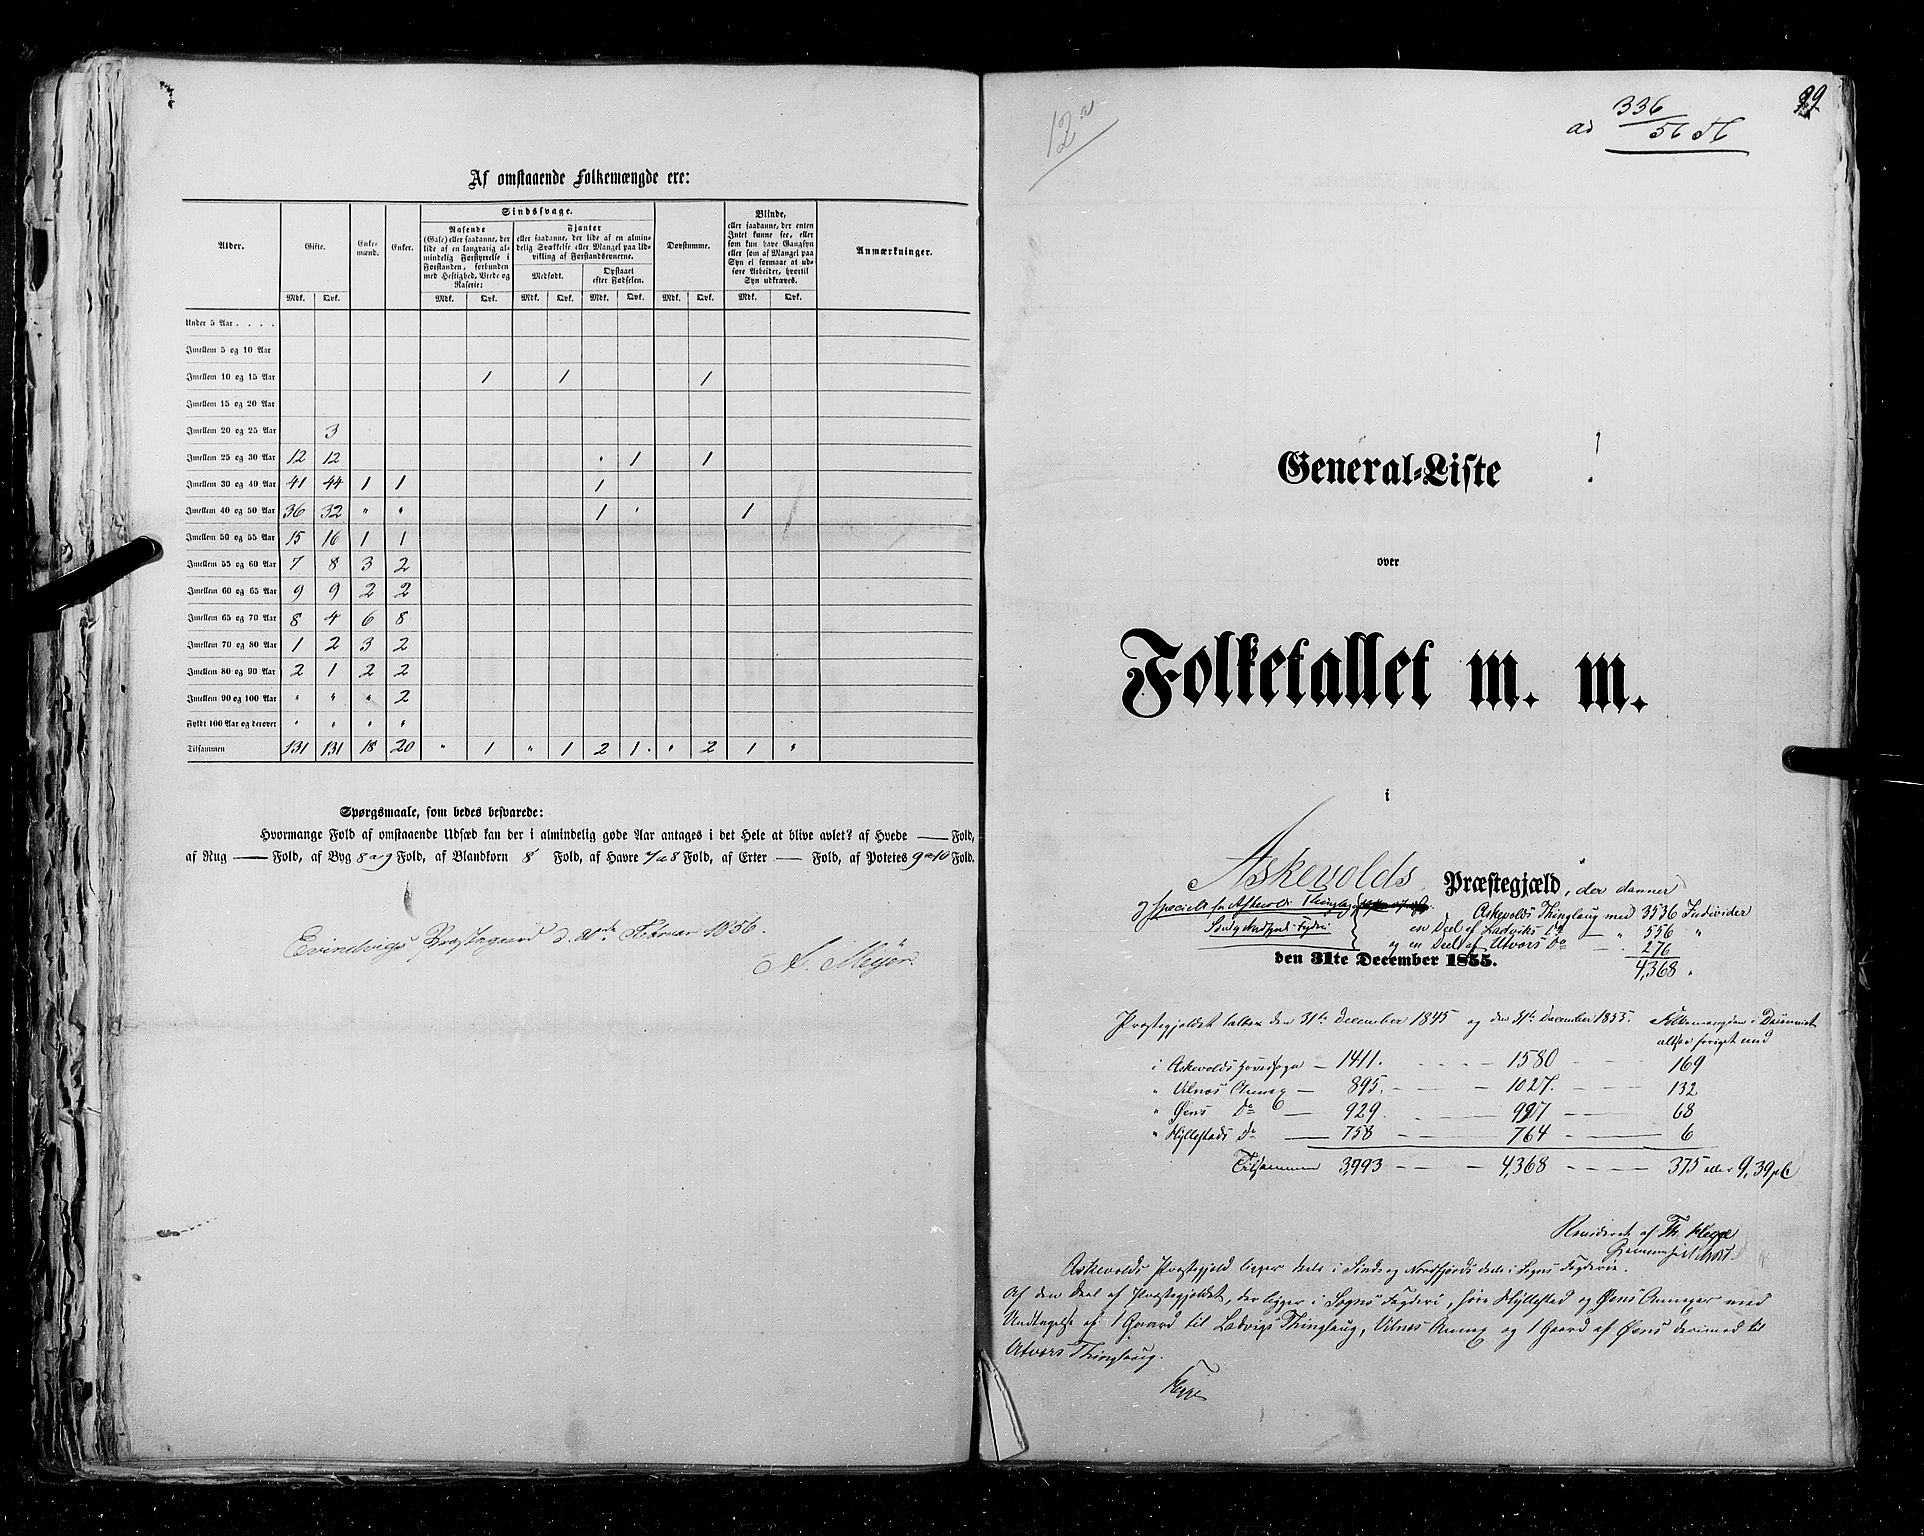 Af omstaaende Folkemængde ere:
Alder. Gifte. Enkemænd. Enker. Sindssvage. Døvstumme. Blinde, Anmærkninger.
Rasende (Gale) eller saadanne, der lide af en langvarig almindelig Forstyrrelse i Forstanden, forbunden med Heftighed, Vrede og Raserie:
Fjanter eller saadanne, der lide af en almindelig Svækkelse eller Mangel paa Udvikling af Forstandsevnerne.
Medfødt. Opstaaet efter Fødselen.
eller saadanne, der enten Intet kunne see, eller som kun have Gangsyn eller som af Mangel paa Syn ei formaae at udføre Arbeider, hvortil Syn udkræves.
Mdk. Qvk. Mdk. Qvk. Mdk. Qvk. Mdk. Qvk. Mdk. Qvk. Mdk. Qvk.
Under 5 Aar . . . .
Imellem 5 og 10 Aar
Imellem 10 og 15 Aar 1 1 1
Imellem 15 og 20 Aar
Imellem 20 og 25 Aar 3
Imellem 25 og 30 Aar 12 12 " 1 1
Imellem 30 og 40 Aar 41 44 1 1 1
Imellem 40 og 50 Aar 36 32 " " 1 " 1
Imellem 50 og 55 Aar 15 16 1 1
Imellem 55 og 60 Aar 7 8 3 2
Imellem 60 og 65 Aar 9 9 2 2
Imellem 65 og 70 Aar 8 4 6 8
Imellem 70 og 80 Aar 1 2 3 2
Imellem 80 og 90 Aar 2 1 2 2
Imellem 90 og 100 Aar " " " 2
Fyldt 100 Aar og derover " " " "
Tilsammen 131 131 18 20 " 1 " 1 2 1 " 2 1 "
Spørgsmaale, som bedes besvarede:
Hvormange Fold af omstaaende Udsæd kan der i almindelig gode Aar antages i det Hele at blive avlet? af Hvede — Fold,
af Rug — Fold, af Byg 8 a 9 Fold, af Blandkorn 8 Fold, af Havre 7 a 8 Fold, af Erter — Fold, af Potetes 9 a 10 Fold.
Evindvigs Præstegaard d. Februar 1856.
Meyer.
12 a
ad 336/56
General-Liste
over
Folketallet m. m.
i
Askevolds Præstegjæld, der danner
Askevolds Thinglaug med 3536 Individer
en Deel af Ladviks Do — " 556 "
og en Deel af Utvørs Do — " 276
4,368 "
den 31te December 1855.
Præstegjeldet talte den 31te December 1845 og den 31te December 1855. Folkemængden i Decenniet
altsaa forøget med
i Askevolds Hovedsogn — 1411. 1580 169
" Vilnæs Annex — 895. 1027. 132
" Øens Do 929 997 68
" Hyllestads Do — 758 764 6
Tilsammen 3,993 4,368 375 eller 9,39 pC
Revideret af Th. Hegge
Askevolds Præstegjeld ligger deels i Sønd og Nordfjords deels i Sogns Fogderie.
Af den Deel af Præstegjeldet, der ligger i Sogns Fogderi, høre Hyllestad og Øens Annexer med
Undtagelse af 1 Gaard til Ladvigs Thinglaug, Vilnæs Annex og 1 Gaard af Øens derimod til
Utvørs Thinglaug.
Hegge